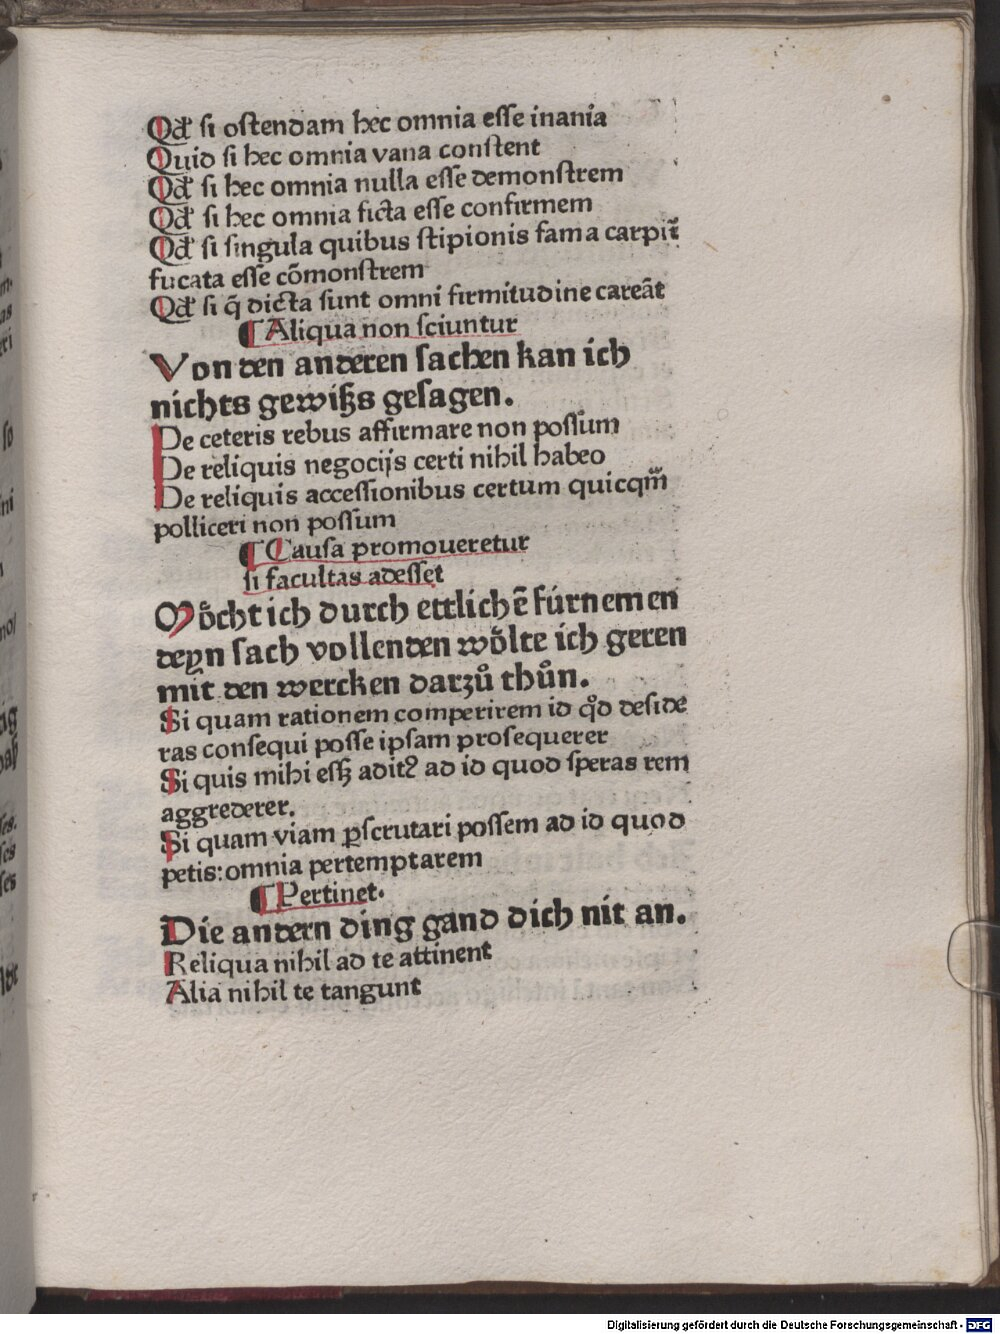 Qđ si ostendam hec omnia esse inania
Quid si hec omnia vana constent
Qđ si hec omnia nulla esse demonstrem
Qđ si hec omnia ficta esse confirmem
Qđ si singula quibus stipionis fama carpit᷑
fucata esse cōmonstrem
Qđ si q̄ dicta sunt omni firmitudine careāt
¶ Aliqua non sciuntur
Von den anderen sachen kan ich
nichts gewiszs gesagen.
De ceteris rebus affirmare non possum
De reliquis negocijs certi nihil habeo
De reliquis accessionibus certum quicqm̃
polliceri non possum
¶ Causa promoueretur
si facultas adesset
Moͤcht ich durch ettlichē fúrnemen
deyn sach vollenden woͤlte ich geren
mit den wercken darzuͦ thuͦn.
Si quam rationem comperirem id qͦd deside
ras consequi posse ipsam prosequerer
Si quis mihi essꝫ aditꝰ ad id quod speras rem
aggrederer.
Si quam viam ꝑscrutari possem ad id quod
petis: omnia pertemptarem
¶ Pertinet.
Die andern ding gand dich nit an.
Reliqua nihil ad te attinent
Alia nihil te tangunt
Digitalisierung gefördert durch die Deutsche Forschungsgemeinschaft - DFG